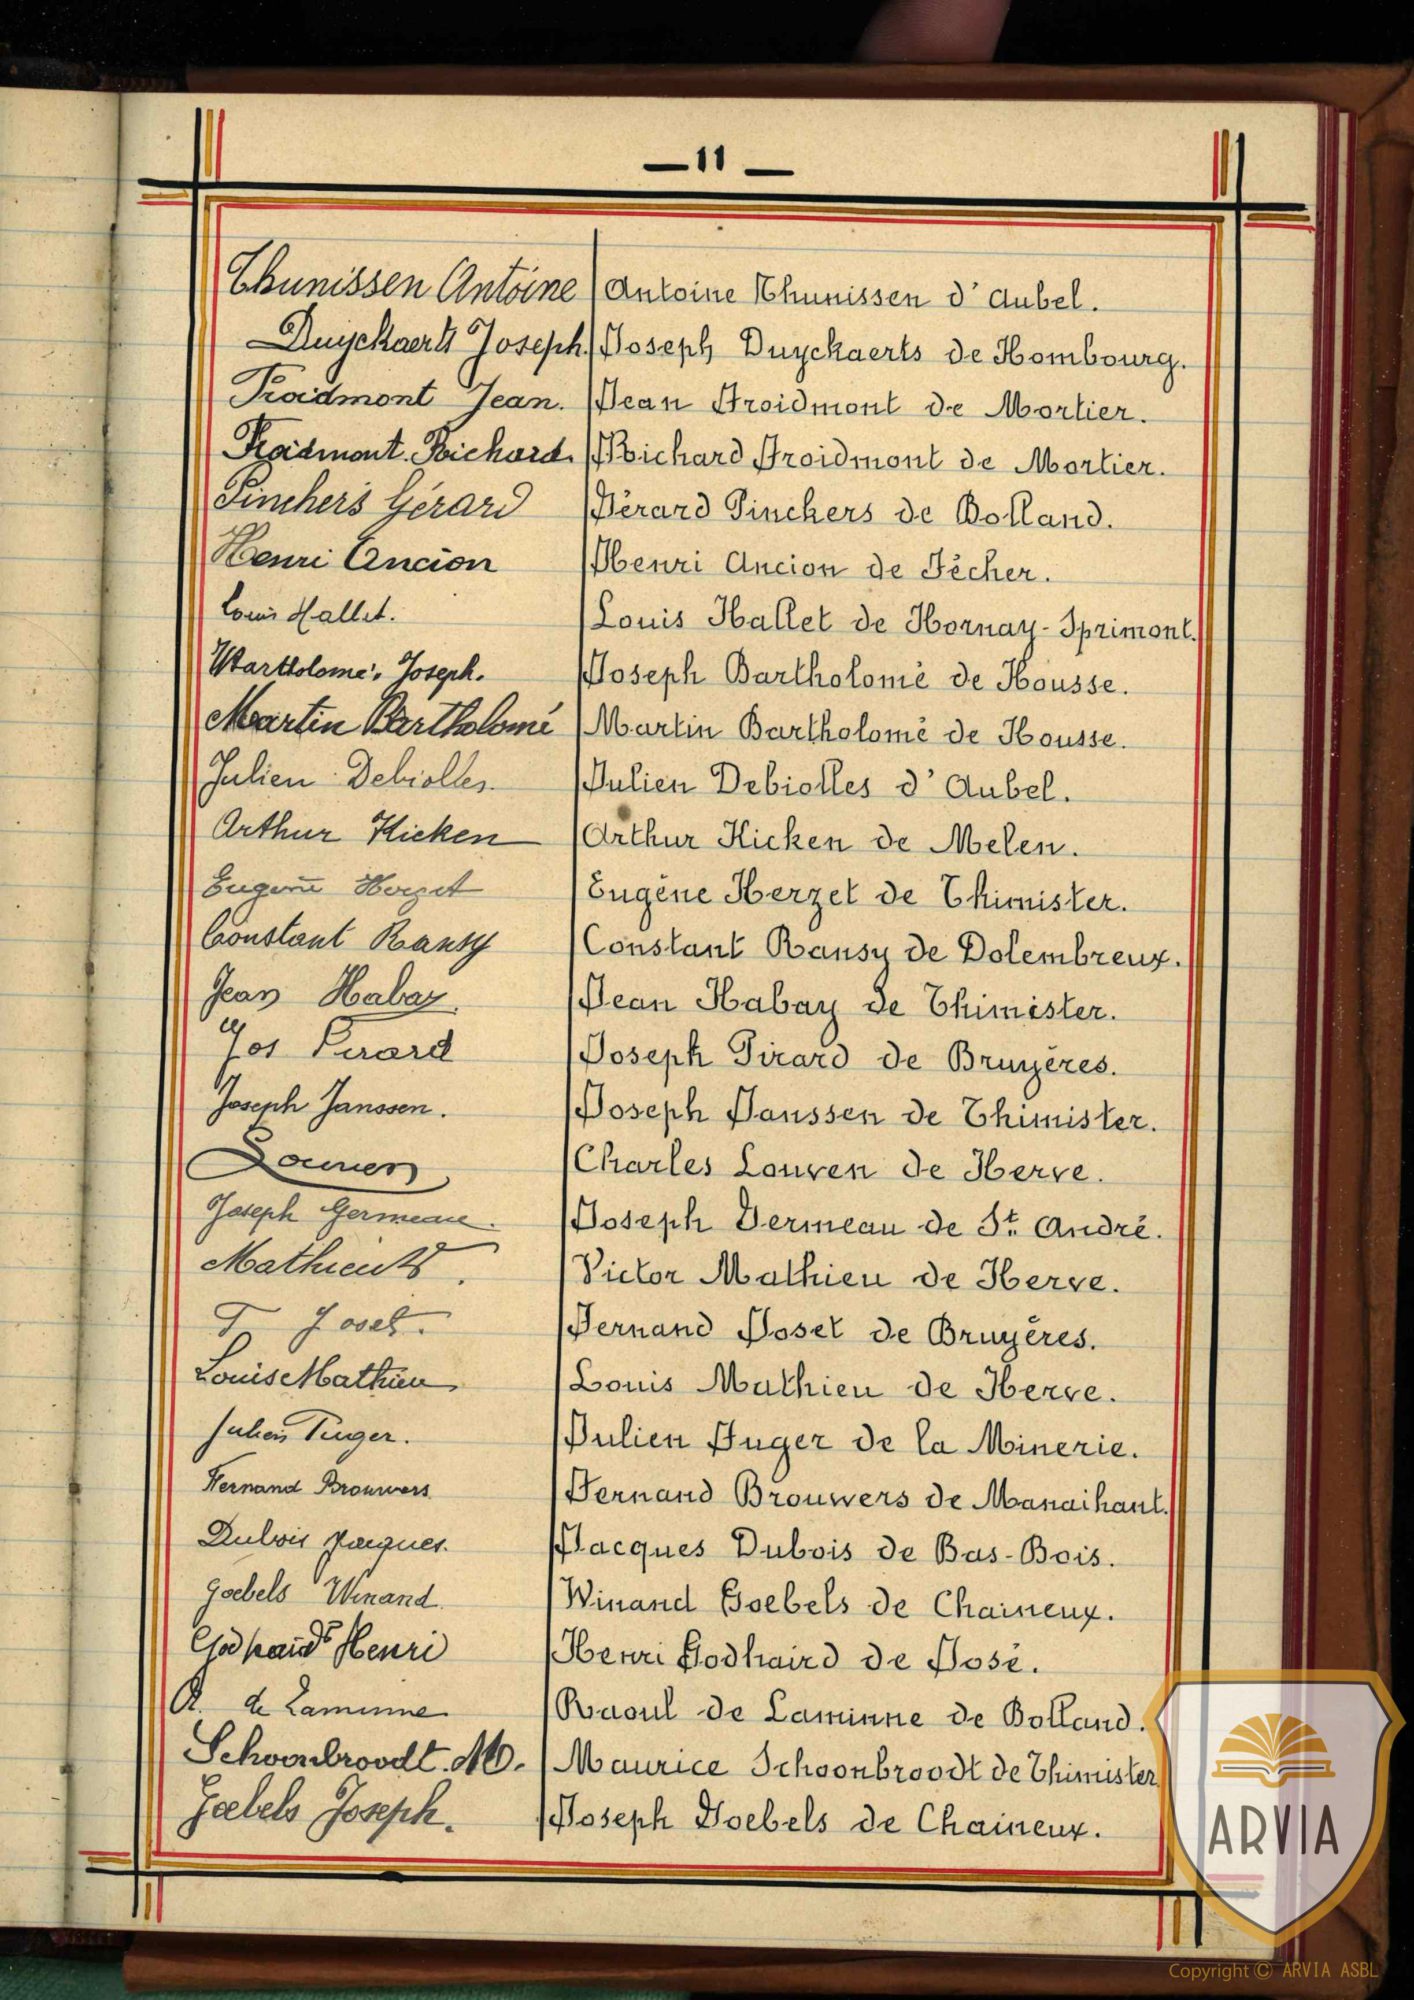 — 11 —
Thunissen Antoine Antoine Thunissen d'Aubel.
Duyckaerts Joseph. Joseph Duyckaerts de Hombourg.
Froidmont Jean. Jean Froidmont de Mortier.
Froidmont Richard. Richard Froidmont de Mortier.
Pinckers Gérard Gérard Pinckers de Bolland.
Henri Ancion Henri Ancion de Fécher.
Louis Hallet. Louis Hallet de Hornay-Sprimont.
Bartholomé Joseph. Joseph Bartholomé de Housse.
Martin Bartholomé Martin Bartholomé de Housse.
Julien Debiolles. Julien Debiolles d'Aubel.
Arthur Kicken Arthur Kicken de Melen.
Eugène Herzet Eugène Herzet de Thimister.
Constant Ransy Constant Ransy de Dolembreux.
Jean Habay. Jean Habay de Thimister.
Jos Pirard Joseph Pirard de Bruyères.
Joseph Janssen. Joseph Janssen de Thimister.
Louven Charles Louven de Herve.
Joseph Germeau. Joseph Germeau de St. André.
Mathieu V. Victor Mathieu de Herve.
F Joset. Fernand Joset de Bruyères.
Louis Mathieu Louis Mathieu de Herve.
Julien Fuger. Julien Fuger de la Minerie.
Fernand Brouwers Fernand Brouwers de Manaihant.
Dubois Jacques. Jacques Dubois de Bas-Bois.
Goebels Winand Winand Goebels de Chaineux.
Godhaird Henri Henri Godhaird de José.
R. de Laminne Raoul de Laminne de Bolland.
Schoonbroodt. M. Maurice Schoonbroodt de Thimister
Goebels Joseph. Joseph Goebels de Chaineux.
ARVIA
Copyright © ARVIA ASBL